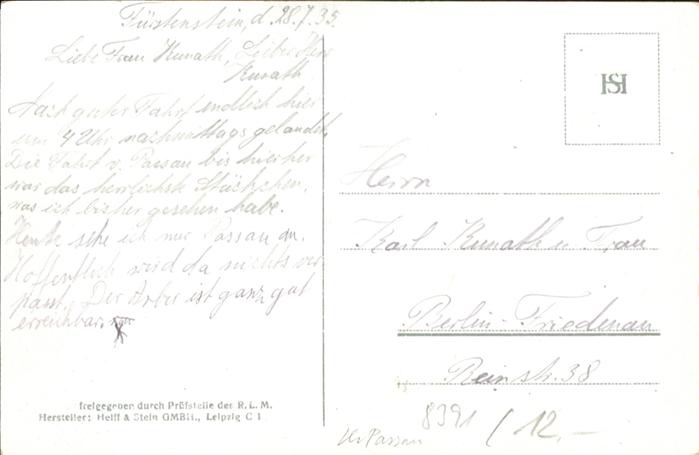 Fürstenstein, d. 28.7.35.
Liebe Frau Kunath, Lieber Herr
Kunath,
Nach guter Fahrt endlich hier
um 4 Uhr nachmittags gelandet.
Die Fahrt v. Passau bis hierher
war das herrlichste Stückchen,
was ich bisher gesehen habe.
Heute sehe ich mir Passau an.
Hoffentlich wird da nichts ver-
passt. Der Arber ist ganz gut
erreichbar.
freigegeben durch Prüfstelle des R.L.M.
Hersteller: Helff & Stein GMBH., Leipzig C 1
HS
Herrn
Karl Kunath u Frau
Berlin-Friedenau
Rheinstr. 38
8391 / 12,-
Kr Passau